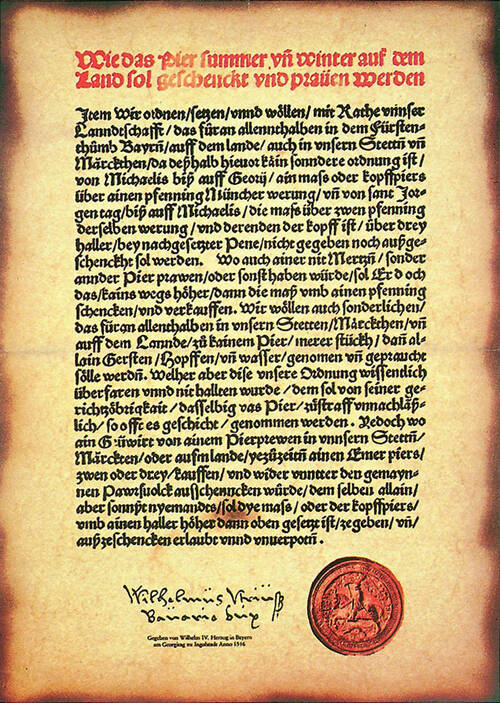 Wie das Pier summer vñ winter auf dem
Land sol geschenckt vnd praüen werden
Item Wir ordnen/setzen/vnnd wöllen/mit Rathe vnnser
Lanndtschafft/das füran allennthalben in dem Fürsten-
thümb Bayrñ/auff dem lande/auch in vnsern Stettñ vñ
Märckthen/da deßhalb hieuor kain sonndere ordnung ist/
von Michaelis biß auff Georij/ain mass oder kopffpiers
über ainen pfenning Müncher werung/vñ von sant Jor-
gen tag/biß auff Michaelis/die mass über zwen pfenning
derselben werung/vnd derenden der kopff ist/über drey
haller/bey nachgesetzter Pene/nicht gegeben noch außge-
schenckht sol werden. Wo auch ainer nit Mertzñ/sonder
annder Pier prawen/oder sonst haben würde/sol Er d och
das/kains wegs höher/dann die maß vmb ainen pfenning
schencken/vnd verkauffen. Wir wöllen auch sonderlichen/
das füran allenthalben in vnsern Stetten/Märckthen/vñ
auff dem Lannde/zü kainem Pier/merer stückh/dañ al-
lain Gersten/Hopffen/vñ wasser/genomen vñ gepraucht
sölle werdñ. Welher aber dise vnsere Ordnung wissentlich
überfaren vnnd nit hallten wurde/dem sol von seiner ge-
richtzöbrigkait/dasselbig vas Pier/züstraff vnnachläß-
lich/so offt es geschicht/genommen werden. Yedoch wo
ain Güwirt von ainem Pierprewen in vnnsern Stettñ/
Märckten/oder aufm lande/yezüzeitñ ainen Emer piers/
zwen oder drey/kauffen/vnd wider vnntter den gemayn-
nen Pawrsuolck ausschenncken würde/dem selben allain/
aber sonnßt nyemandts/sol dye mass/oder der kopffpiers/
vmb ainen haller höher dann oben gesetzt ist/zegeben/vñ/
außzeschencken erlaubt vnnd vnuerpotñ.
Wilhelmus
Bavarie Dux
Gegeben von Wilhelm IV. Herzog in Bayern
am Georgitag zu Ingolstadt Anno 1516